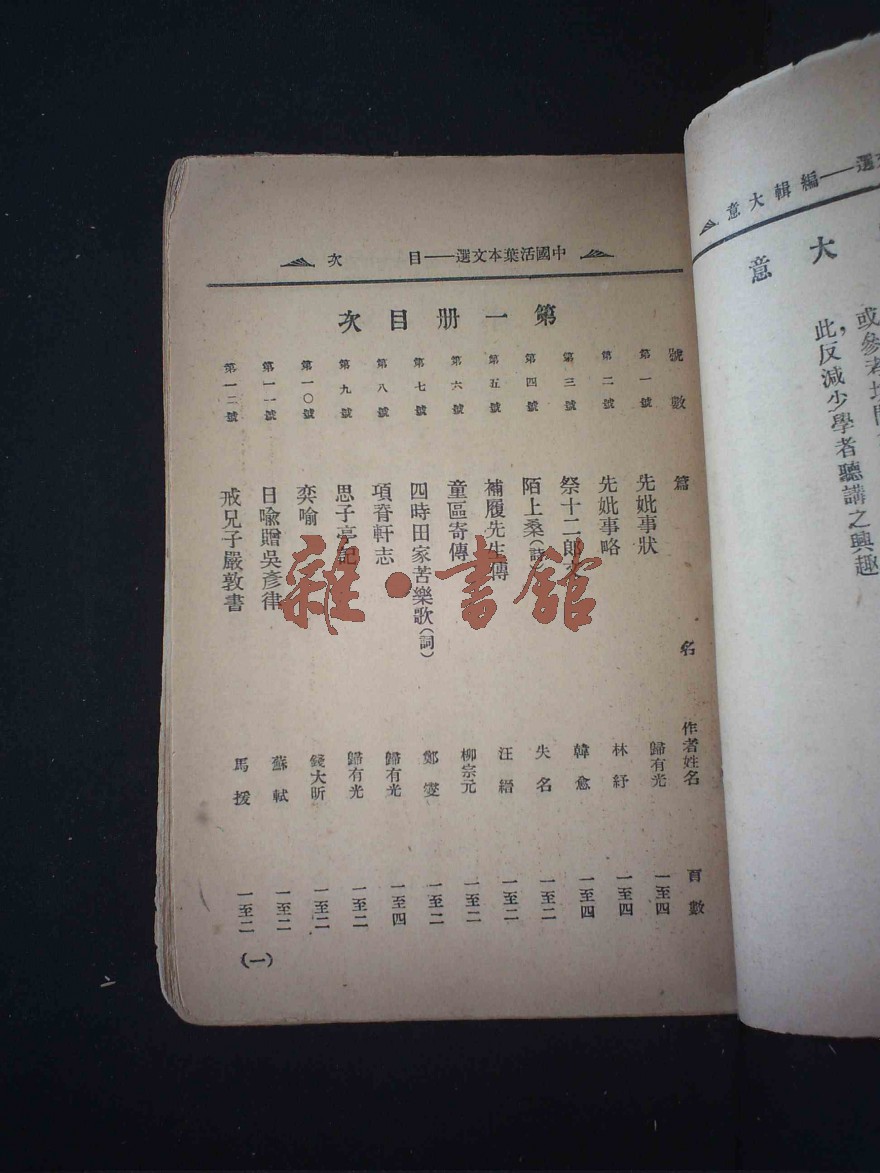 中國活葉本文選——目　次
第一册目次
號數　篇名　作者姓名　頁數
第一號　先妣事狀　歸有光　一至四
第二號　先妣事略　林紓　一至四
第三號　祭十二郎文　韓愈　一至四
第四號　陌上桑(詩)　失名　一至二
第五號　補履先生傳　汪縉　一至二
第六號　童區寄傳　柳宗元　一至二
第七號　四時田家苦樂歌(詞)　鄭燮　一至二
第八號　項脊軒志　歸有光　一至四
第九號　思子亭記　歸有光　一至二
第一〇號　奕喻　錢大昕　一至二
第一一號　日喩贈吳彥律　蘇軾　一至二
第一二號　戒兄子嚴敦書　馬援　一至二
(一)
選——編輯大意
大意
或參考
此反減少學者聽講之興趣，
雜·書館